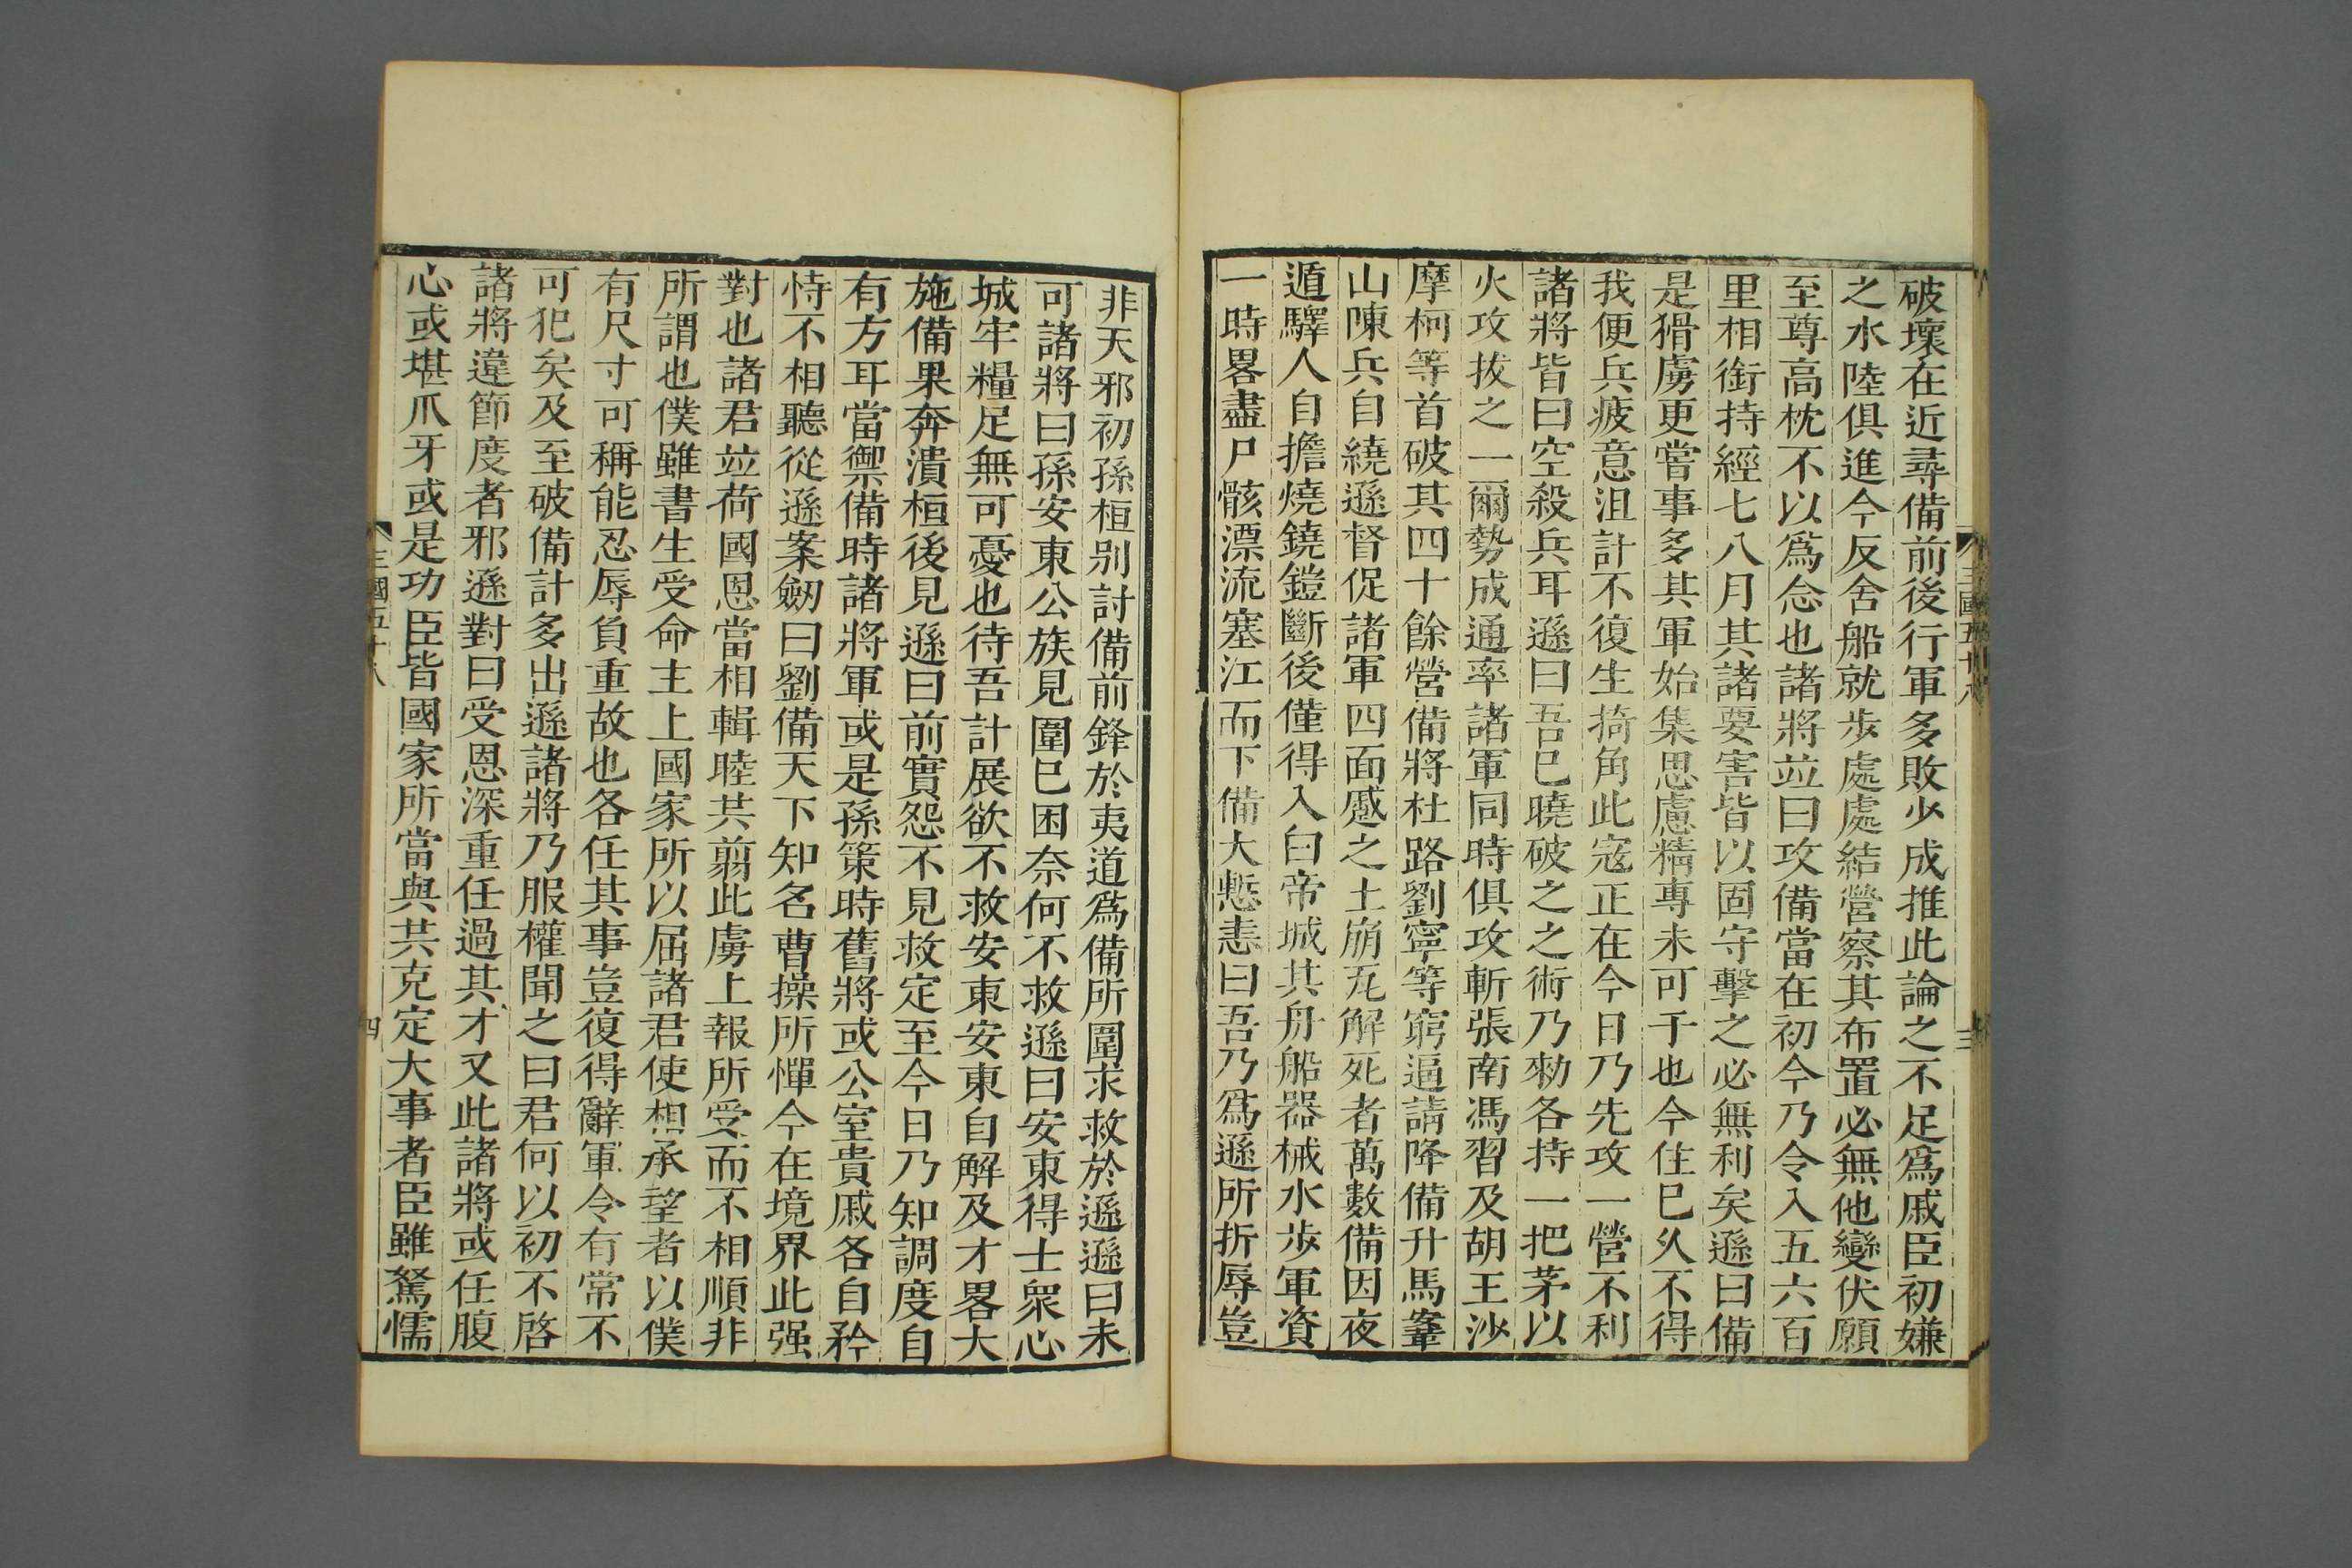 破壞在近尋備前後行軍多敗少成推此論之不足爲戚臣初嫌
之水陸俱進今反舍船就步處處結營察其布置必無他變伏願
至尊高枕不以爲念也諸將竝曰攻備當在初今乃令入五六百
里相銜持經七八月其諸要害皆以固守擊之必無利矣遜曰備
是猾虜更嘗事多其軍始集思慮精專未可干也今住已久不得
我便兵疲意沮計不復生掎角此寇正在今日乃先攻一營不利
諸將皆曰空殺兵耳遜曰吾已曉破之之術乃勑各持一把茅以
火攻拔之一爾勢成通率諸軍同時俱攻斬張南馮習及胡王沙
摩柯等首破其四十餘營備將杜路劉寧等窮逼請降備升馬鞌
山陳兵自繞遜督促諸軍四面蹙之土崩瓦解死者萬數備因夜
遁驛人自擔燒鐃鎧斷後僅得入白帝城其舟船器械水步軍資
一時畧盡尸骸漂流塞江而下備大慙恚曰吾乃爲遜所折辱豈
三國五十八
三
非天邪初孫桓别討備前鋒於夷道爲備所圍求救於遜遜曰未
可諸將曰孫安東公族見圍已困奈何不救遜曰安東得士衆心
城牢糧足無可憂也待吾計展欲不救安東安東自解及才畧大
施備果奔潰桓後見遜曰前實怨不見救定至今日乃知調度自
有方耳當禦備時諸將軍或是孫策時舊將或公室貴戚各自矜
恃不相聽從遜案劒曰劉備天下知名曹操所憚今在境界此强
對也諸君竝荷國恩當相輯睦共翦此虜上報所受而不相順非
所謂也僕雖書生受命主上國家所以屈諸君使相承望者以僕
有尺寸可稱能忍辱負重故也各任其事豈復得辭軍令有常不
可犯矣及至破備計多出遜諸將乃服權聞之曰君何以初不啓
諸將違節度者邪遜對曰受恩深重任過其才又此諸將或任腹
心或堪爪牙或是功臣皆國家所當與共克定大事者臣雖駑懦
三國五十八
四